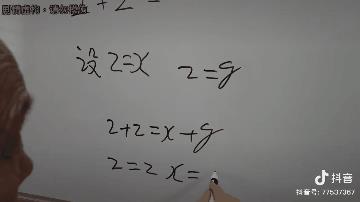 剧情虚构,请勿模仿
+2=
设 2=x 2=y
2+2=x+y
2=2 x=
抖音
抖音号: 77537367